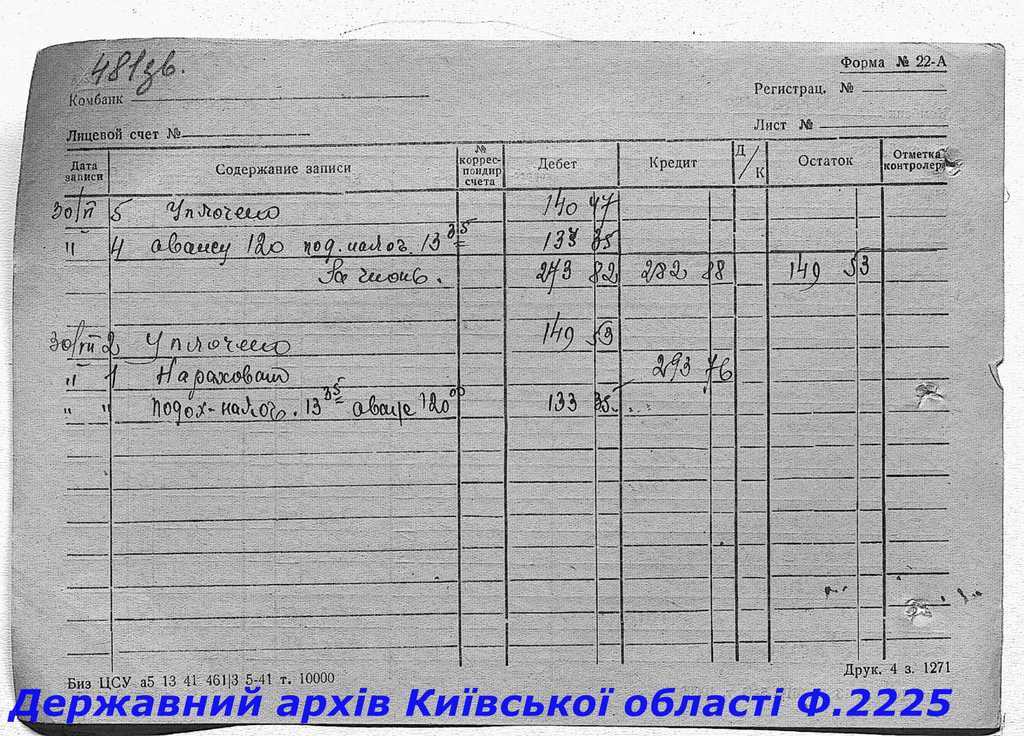 481 зв.
Форма № 22-А
Комбанк
Регистрац. №
Лицевой счет №
Лист №
Дата записи Содержание записи № коррес- пондир счета Дебет Кредит Д/К Остаток Отметка контролера
30/VI 5 Уплочено 140 47
" 4 авансу 120 под. налог. 13 35 133 35
За июнь. 273 82 282 88 149 53
30/VII 2 Уплочено 149 53
" 1 Нараховат 293 76
" " подох-налог. 13 35 аванс 120 00 133 35
Биз ЦСУ а5 13 41 461|3 5-41 т. 10000
Друк. 4 з. 1271
Державний архів Київської області Ф.2225